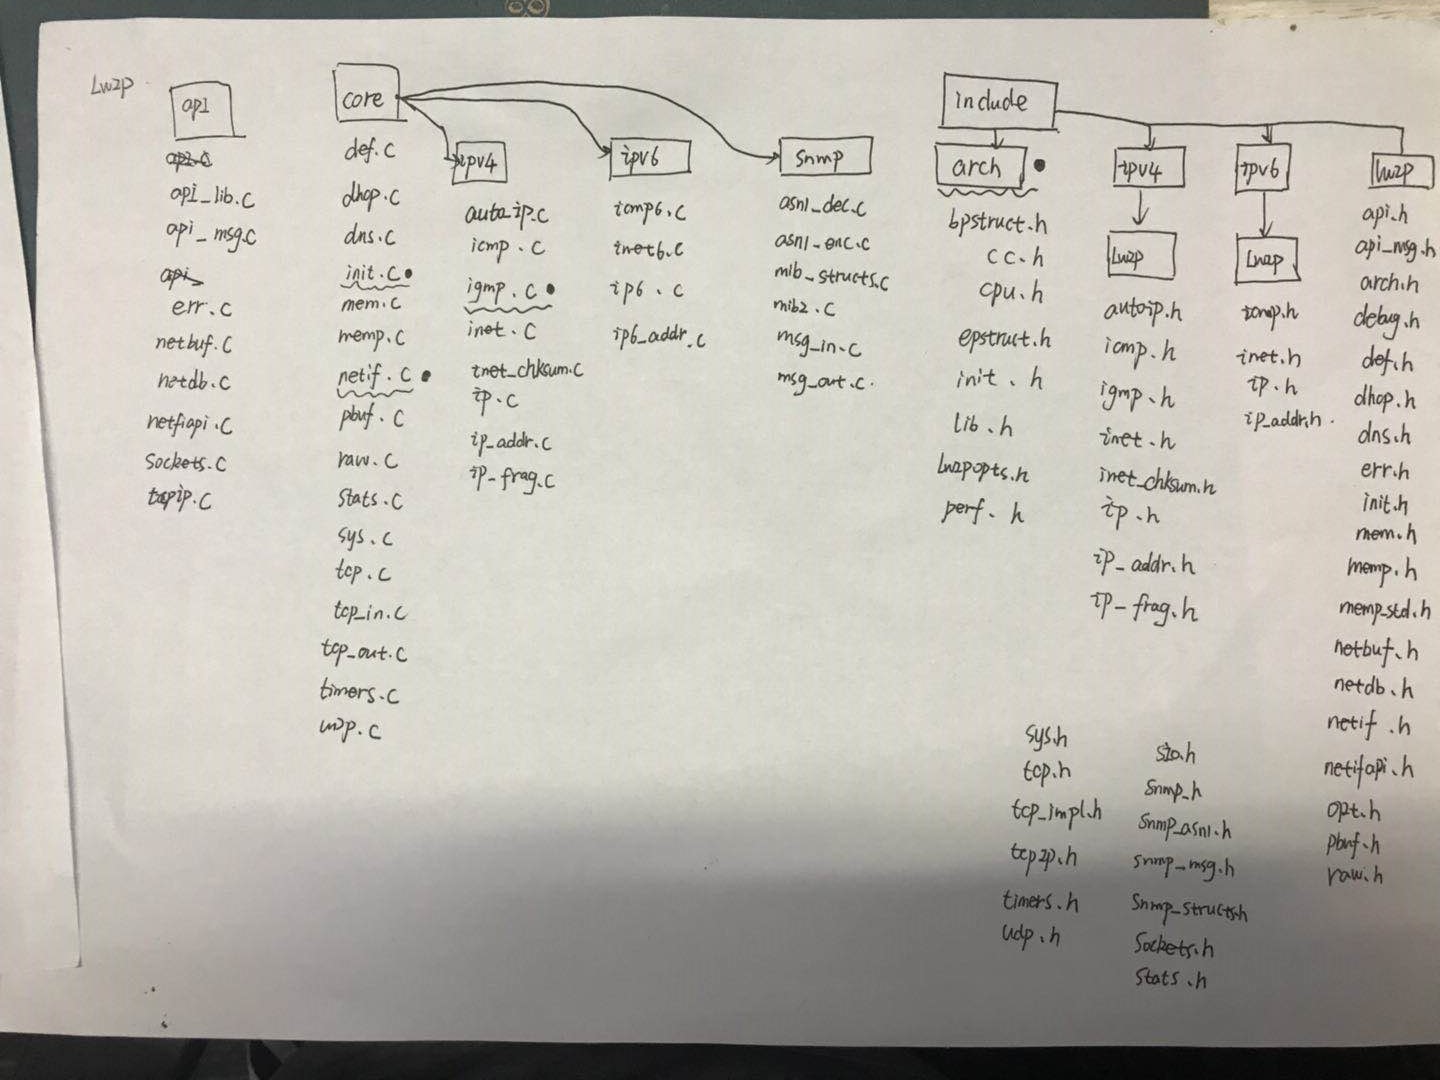 Lwip
api
api_lib.c
api_msg.c
api
err.c
netbuf.c
netdb.c
netfiapi.c
Sockets.c
tcpip.c
core
def.c
dhcp.c
dns.c
init.c
mem.c
memp.c
netif.c
pbuf.c
raw.c
stats.c
sys.c
tcp.c
tcp_in.c
tcp_out.c
timers.c
ipv4
auto-ip.c
icmp.c
igmp.c
inet.c
inet_chksum.c
ip.c
ip_addr.c
ip_frag.c
ipv6
icmp6.c
inet6.c
ip6.c
ip6_addr.c
snmp
asn1_dec.c
asn1_enc.c
mib_structs.c
mib2.c
msg_in.c
msg_out.c.
include
arch
bpstruct.h
cc.h
cpu.h
epstruct.h
init.h
lib.h
lwipopts.h
perf.h
ipv4
Lwip
autoip.h
icmp.h
igmp.h
inet.h
inet_chksum.h
ip.h
ip_addr.h
ip_frag.h
ipv6
Lwip
icmp.h
inet.h
ip.h
ip_addr.h.
lwip
api.h
api_msg.h
arch.h
debug.h
def.h
dhcp.h
dns.h
err.h
init.h
mem.h
memp.h
memp_std.h
netbuf.h
netdb.h
netif.h
netifapi.h
opt.h
pbuf.h
raw.h
sio.h
snmp_h
snmp_asn1.h
snmp_msg.h
snmp_structs.h
Sockets.h
stats.h
sys.h
tcp.h
tcp_impl.h
tcpip.h
timers.h
udp.h